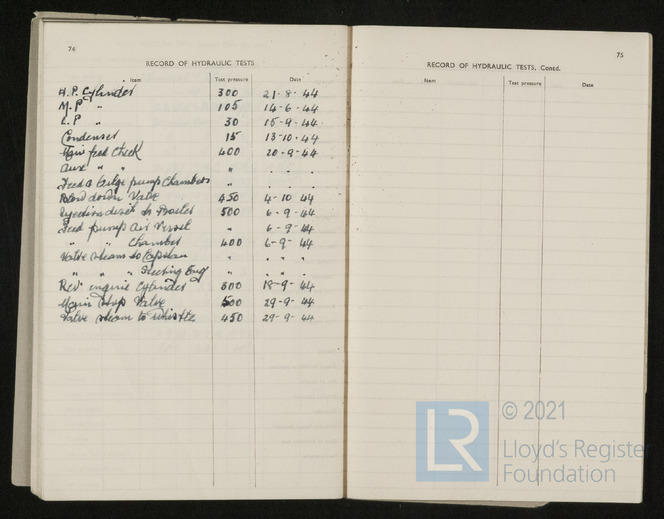 74
RECORD OF HYDRAULIC TESTS
Item Test pressure Date
H.P. Cylinder 300 21-8-44
M.P " 105 14-6-44
L.P " 30 15-9-44
Condenser 15 13-10-44
Main feed Check 400 20-9-44
Aux " " " . . .
Feed & bilge pump Chambers " . . .
Blow down Valve 450 4-10 44
500 6-9-44
Feed pump air Vessel " 6-9-44
" " Chamber 400 6-9-44
Valve steam to Capstan " " " "
" " " Steering Eng " " " "
Rev engine Cylinder 300 18-9-44
Main Stop Valve 500 29-9-44
Valve steam to whistle 450 29-9-44
75
RECORD OF HYDRAULIC TESTS, Contd.
Item Test pressure Date
LR © 2021
Lloyd's Register
Foundation